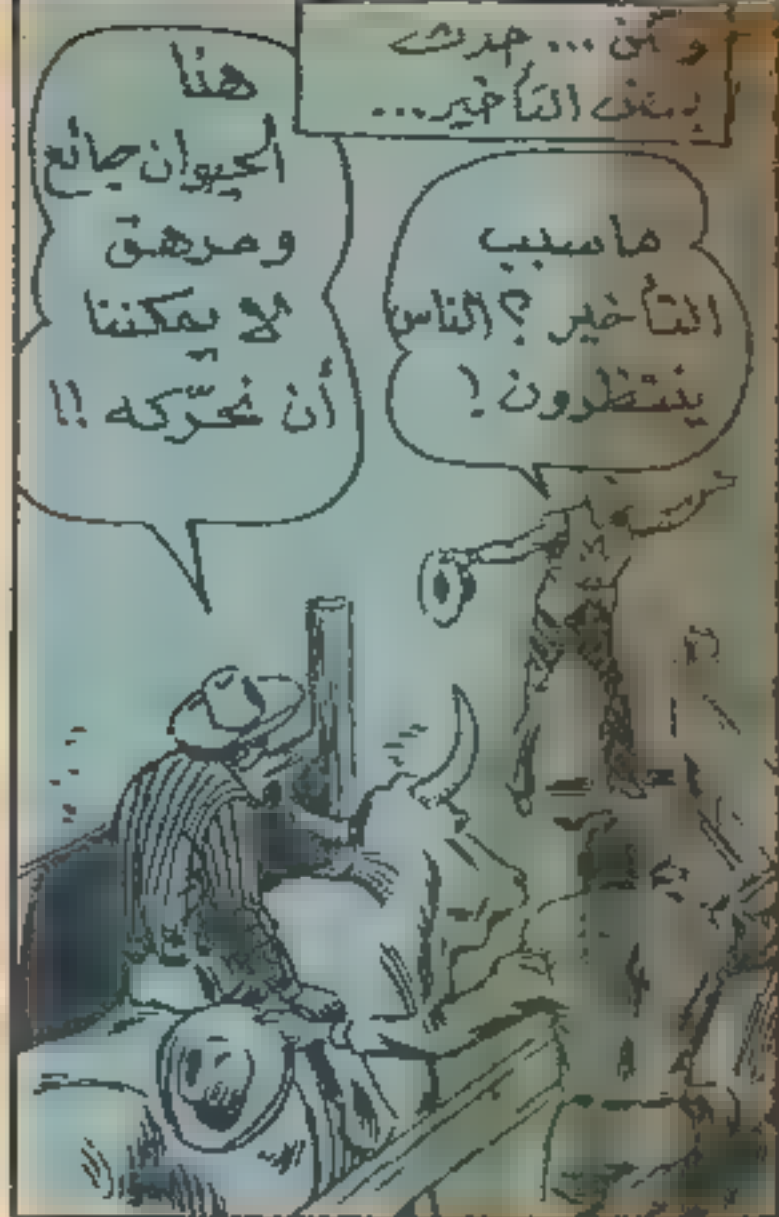 و لكن ... حدث
بعض التأخير...
ما سبب
التأخير؟ الناس
ينتظرون!
هذا
الحيوان جائع
ومرهق
لا يمكننا
أن نحرّكه!!